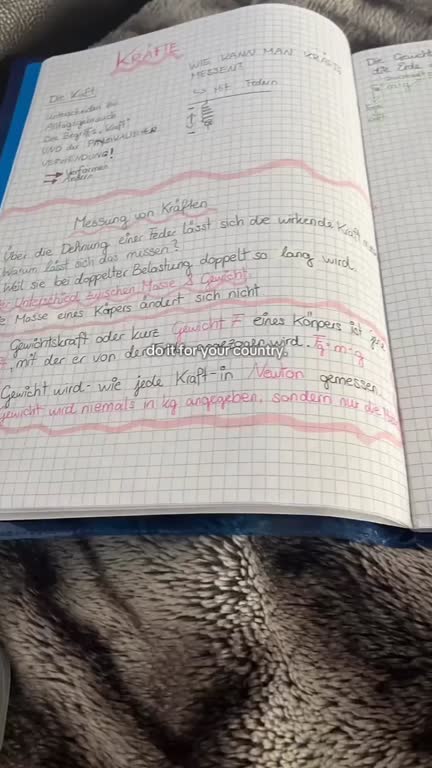 KRÄFTE
WIE KANN MAN KRÄFTE
MESSEN?
Mit Federn
Die Kraft
Unterscheiden bei
Alltagsgebrauch
Des Begriffs "Kraft"
UND der
VERWENDUNG!
Verformen
Ändern
Messung von Kräften
Über die Dehnung einer Feder lässt sich die wirkende Kraft
Warum lässt sich das messen?
Weil sie bei doppelter Belastung doppelt so lang wird.
Unterschied zwischen Masse & Gewicht
Masse eines Körpers ändert sich nicht
Gewichtskraft oder kurz Gewicht F eines Körpers ist
mit der er von der wird. Fg = m · g
do it for your country.
Gewicht wird - wie jede Kraft - in Newton gemessen.
Gewicht wird niemals in kg angegeben, sondern nur die
Die Gewicht
die Erde